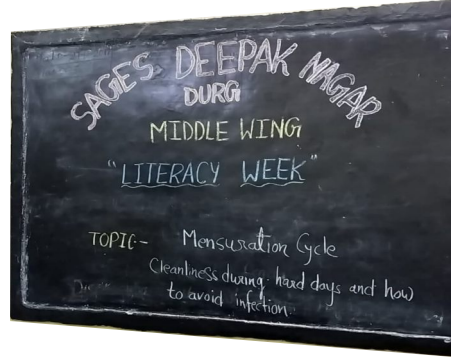 SAGES DEEPAK NAGAR
DURG
MIDDLE WING
"LITERACY WEEK"
TOPIC- Mensuration Cycle
Cleanliness during hard days and how
to avoid infection.